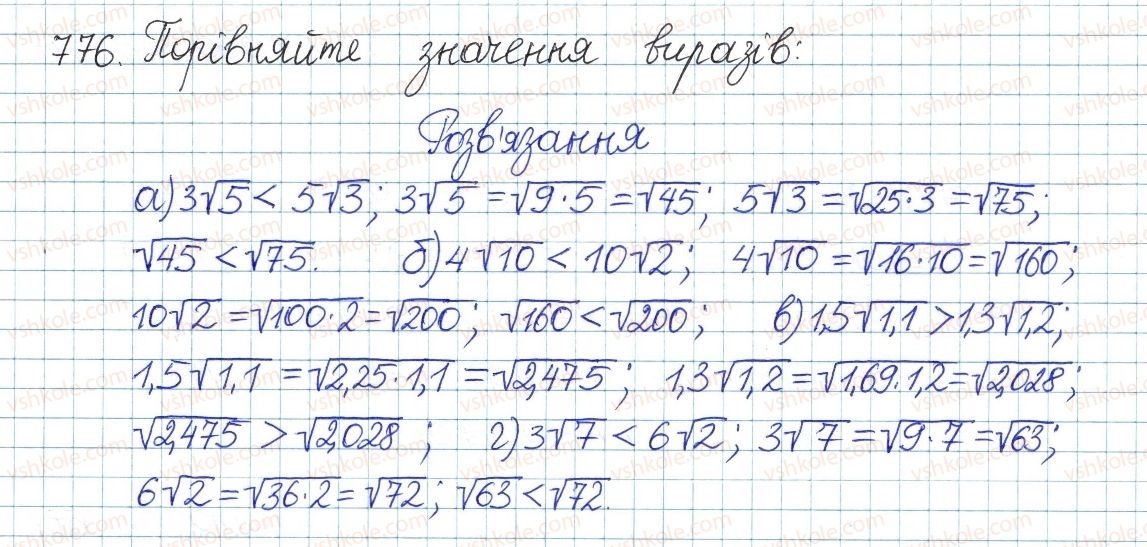 776. Порівняйте значення виразів:
Розв'язання
а) 3√5 < 5√3; 3√5 = √9·5 = √45; 5√3 = √25·3 = √75;
√45 < √75. б) 4√10 < 10√2; 4√10 = √16·10 = √160;
10√2 = √100·2 = √200; √160 < √200; в) 1,5√1,1 > 1,3√1,2;
1,5√1,1 = √2,25·1,1 = √2,475; 1,3√1,2 = √1,69·1,2 = √2,028;
√2,475 > √2,028; г) 3√7 < 6√2; 3√7 = √9·7 = √63;
6√2 = √36·2 = √72; √63 < √72.